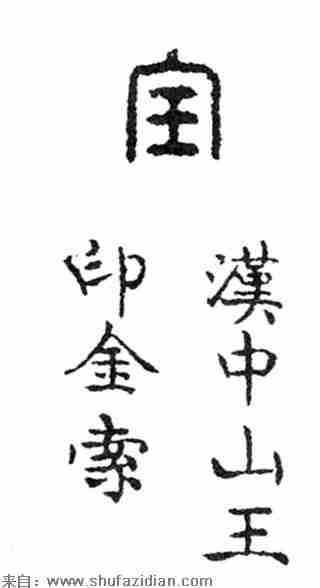 漢中山王
印金索
来自：www.shufazidian.com